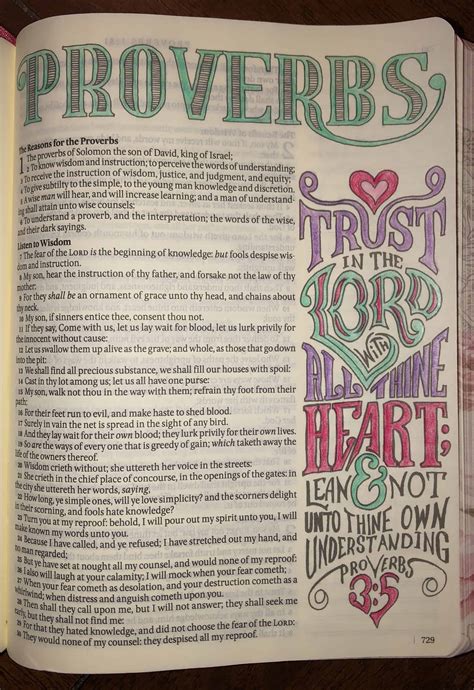 PROVERBS
The Reasons for the Proverbs
1 The proverbs of Solomon the son of David, king of Israel;
2 To know wisdom and instruction; to perceive the words of understanding;
3 To receive the instruction of wisdom, justice, and judgment, and equity;
4 To give subtilty to the simple, to the young man knowledge and discretion.
5 A wise man will hear, and will increase learning; and a man of understand-
ing shall attain unto wise counsels:
6 To understand a proverb, and the interpretation; the words of the wise,
and their dark sayings.
Listen to Wisdom
7 The fear of the LORD is the beginning of knowledge: but fools despise wis-
dom and instruction.
8 My son, hear the instruction of thy father, and forsake not the law of thy
mother:
9 For they shall be an ornament of grace unto thy head, and chains about
thy neck.
10 My son, if sinners entice thee, consent thou not.
11 If they say, Come with us, let us lay wait for blood, let us lurk privily for
the innocent without cause:
12 Let us swallow them up alive as the grave; and whole, as those that go down
into the pit:
13 We shall find all precious substance, we shall fill our houses with spoil:
14 Cast in thy lot among us; let us all have one purse:
15 My son, walk not thou in the way with them; refrain thy foot from their
path:
16 For their feet run to evil, and make haste to shed blood.
17 Surely in vain the net is spread in the sight of any bird.
18 And they lay wait for their own blood; they lurk privily for their own lives.
19 So are the ways of every one that is greedy of gain; which taketh away the
life of the owners thereof.
20 Wisdom crieth without; she uttereth her voice in the streets:
21 She crieth in the chief place of concourse, in the openings of the gates: in
the city she uttereth her words, saying,
22 How long, ye simple ones, will ye love simplicity? and the scorners delight
in their scorning, and fools hate knowledge?
23 Turn you at my reproof: behold, I will pour out my spirit unto you, I will
make known my words unto you.
24 Because I have called, and ye refused; I have stretched out my hand, and
no man regarded;
25 But ye have set at nought all my counsel, and would none of my reproof:
26 I also will laugh at your calamity; I will mock when your fear cometh;
27 When your fear cometh as desolation, and your destruction cometh as a
whirlwind; when distress and anguish cometh upon you.
28 Then shall they call upon me, but I will not answer; they shall seek me
early, but they shall not find me:
29 For that they hated knowledge, and did not choose the fear of the LORD:
30 They would none of my counsel: they despised all my reproof.
TRUST
IN THE
LORD
WITH
ALL THINE
HEART;
& LEAN NOT
UNTO THINE OWN
UNDERSTANDING
PROVERBS
3:5
729